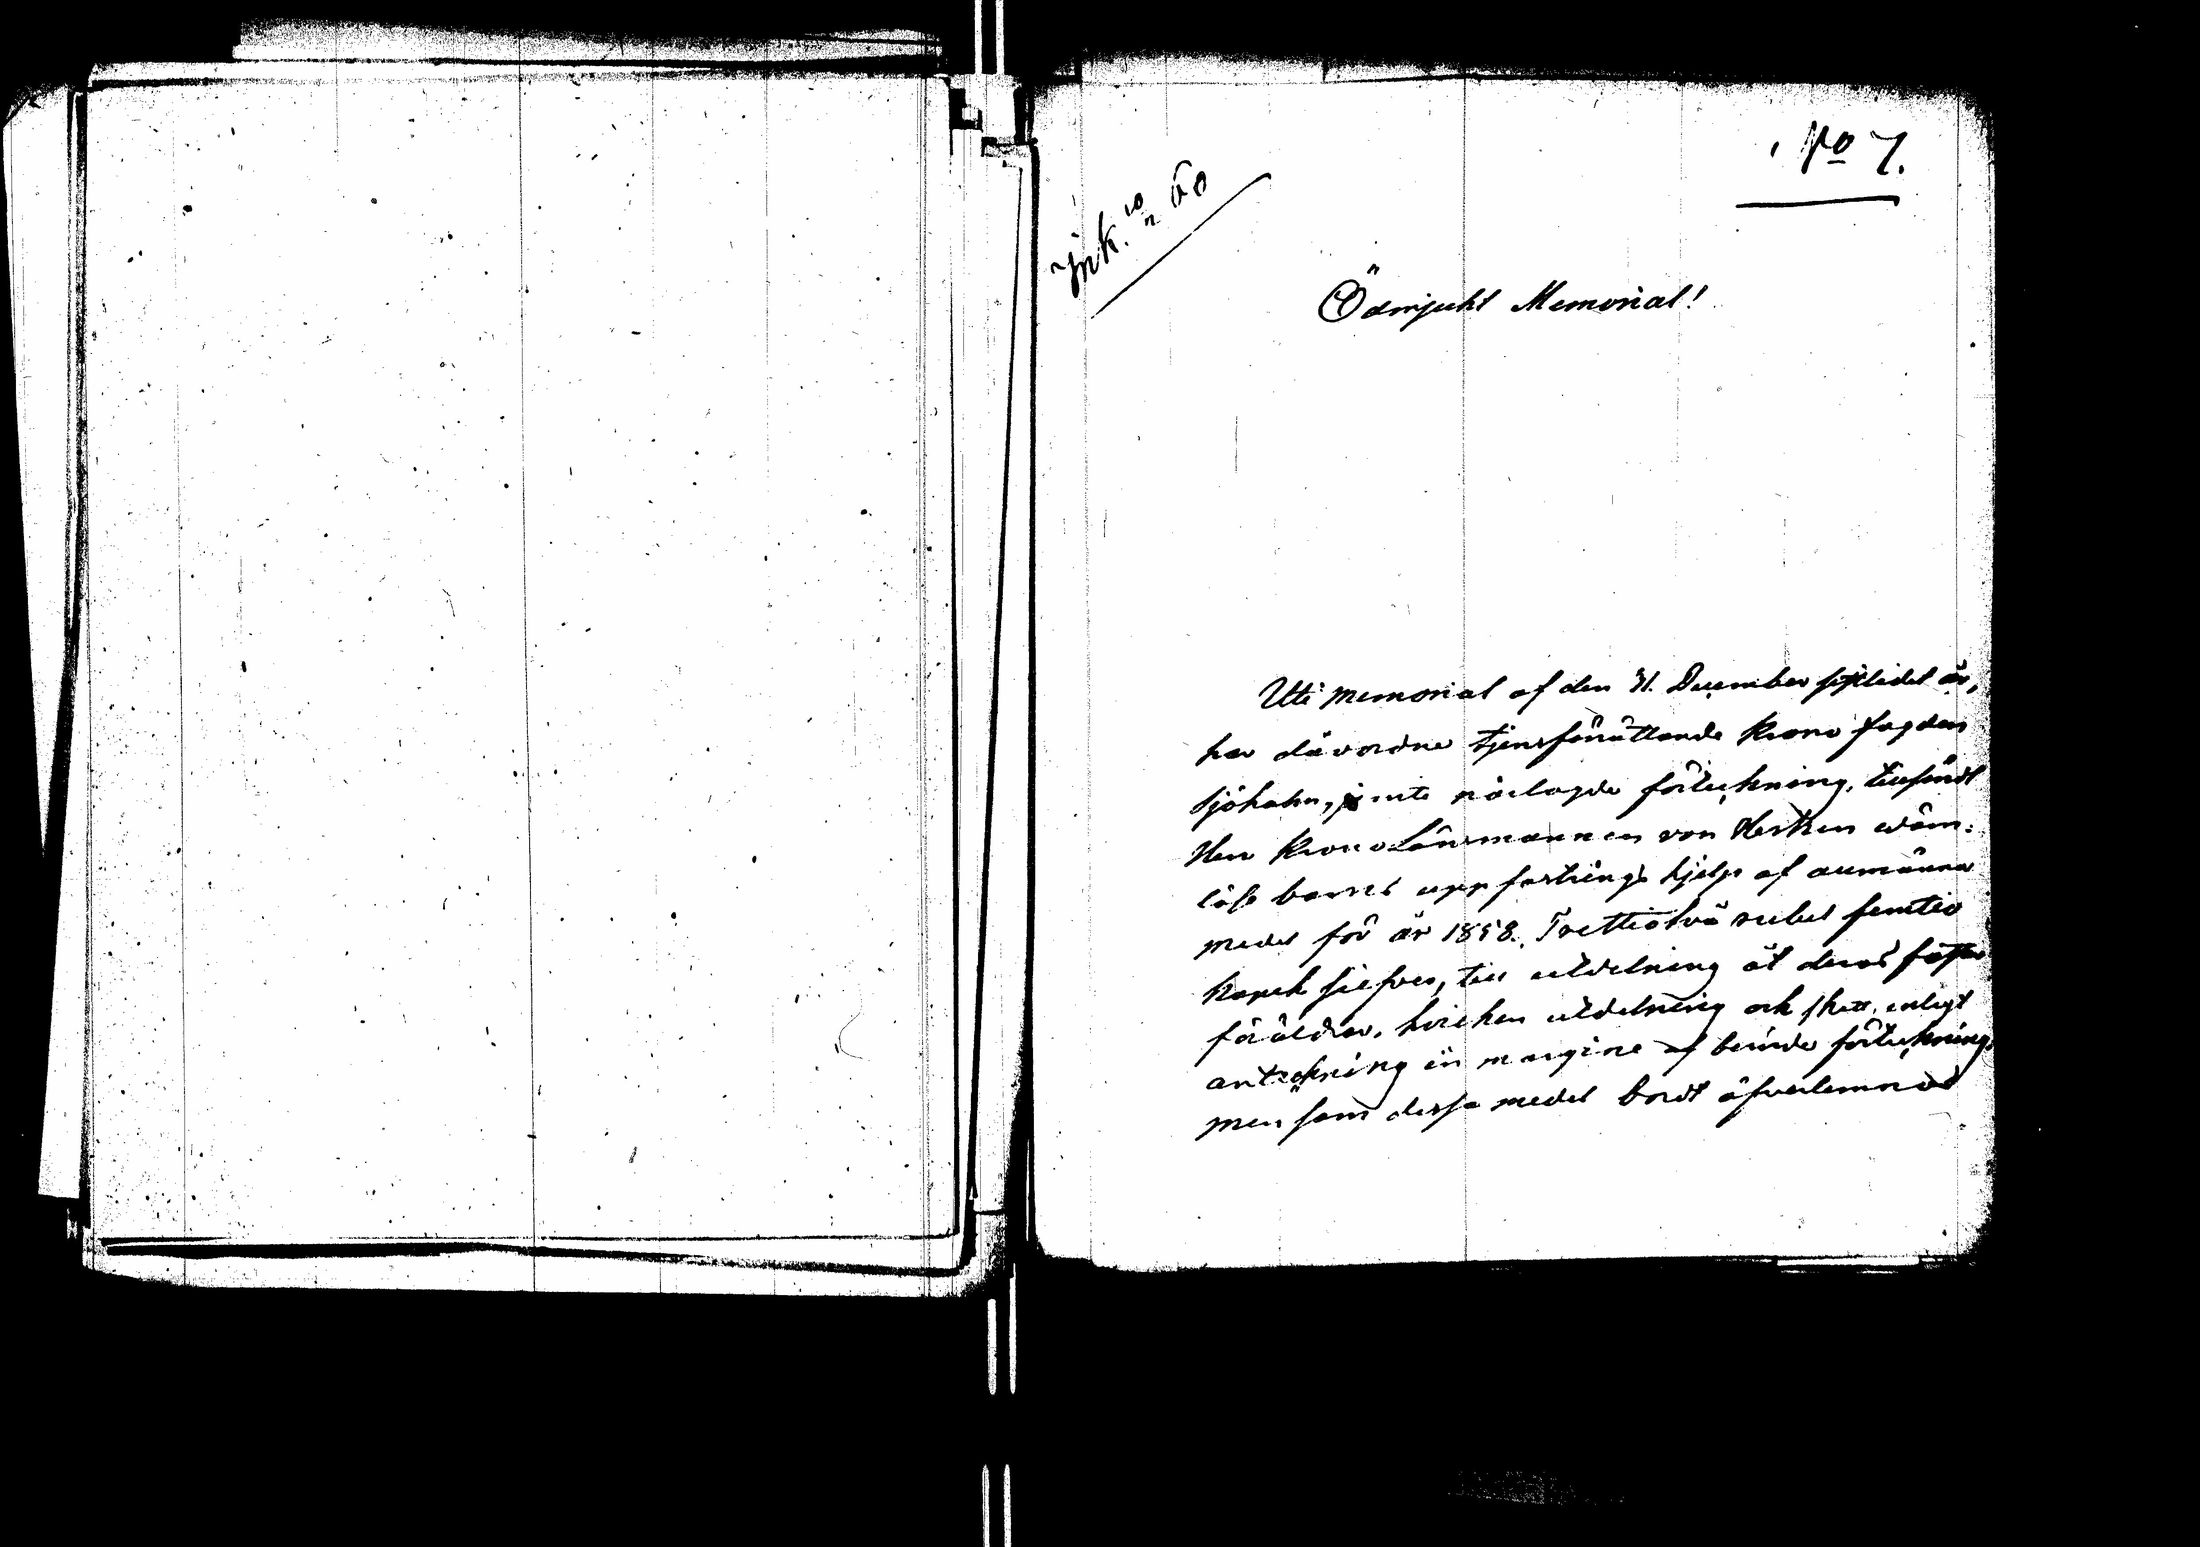 No 7.
Ink. 10/2 60
Ödmjukt Memorial!
Uti memorial af den 31. December sistlidet år,
har dåvordne tjensförrättande Krono fogden
Sjöholm, jemte närlagde förteckning, tillsändt
Herr Kronolänsmannen von Hertzen wärn-
lösa barns uppfostrings hjelp af allmänna
medel för år 1858. Trettiotvå rubel femtio
kopek silfver, till utdelning åt deras foster
föräldrar, hvilken utdelning ock skett enligt
anteckning in margine af berörde förteckning,
men som dessa medel bordt öfverlemnas